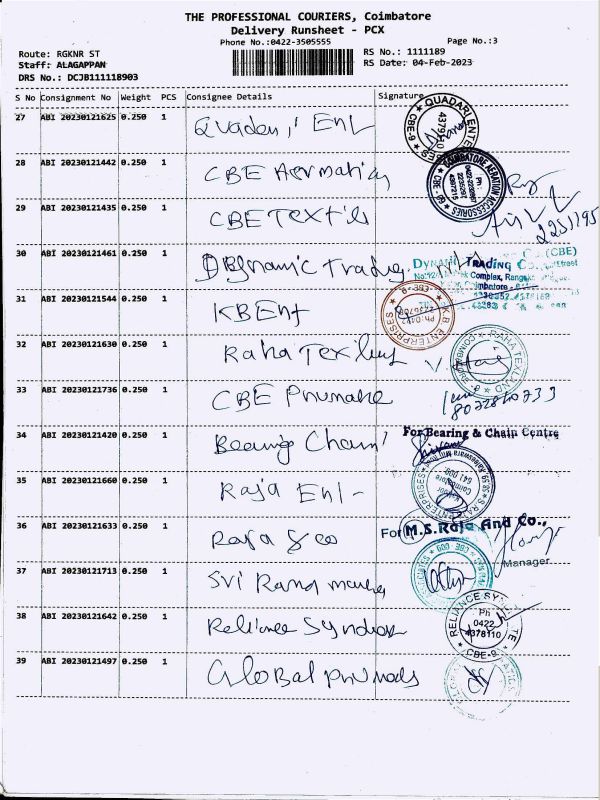 THE PROFESSIONAL COURIERS, Coimbatore
Delivery Runsheet - PCX
Phone No.:0422-3505555 Page No.:3
Route: RGKNR ST RS No.: 1111189
Staff: ALAGAPPAN RS Date: 04-Feb-2023
DRS No.: DCJB111118903
S No Consignment No Weight PCS Consignee Details Signature
27 ABI 20230121625 0.250 1 Quadri Ent
QUADARI ENTE
CBE-9
28 ABI 20230121442 0.250 1 CBE Aermation
COIMBATORE AERATION ACCESSORIES
29 ABI 20230121435 0.250 1 CBE Textils
2251195
30 ABI 20230121461 0.250 1 Dynamic Trading
(CBE)
DYNAMIC TRADING CO.
31 ABI 20230121544 0.250 1 KB Ent
K.B. ENTERPRISES
32 ABI 20230121630 0.250 1 Raha Texiles
RAHA TEXLAND
33 ABI 20230121736 0.250 1 CBE Pnumake
34 ABI 20230121420 0.250 1 Bearing Chain
For Bearing & Chain Centre
35 ABI 20230121660 0.250 1 Raja Ent -
36 ABI 20230121633 0.250 1 Raja & co
For M.S.Raja And Co.,
Manager
37 ABI 20230121713 0.250 1 Sri Rana
38 ABI 20230121642 0.250 1 Reliance Syndicate
RELIANCE SYNDICATE
Ph
0422
4378110
CBE-9
39 ABI 20230121497 0.250 1 Global pnumats